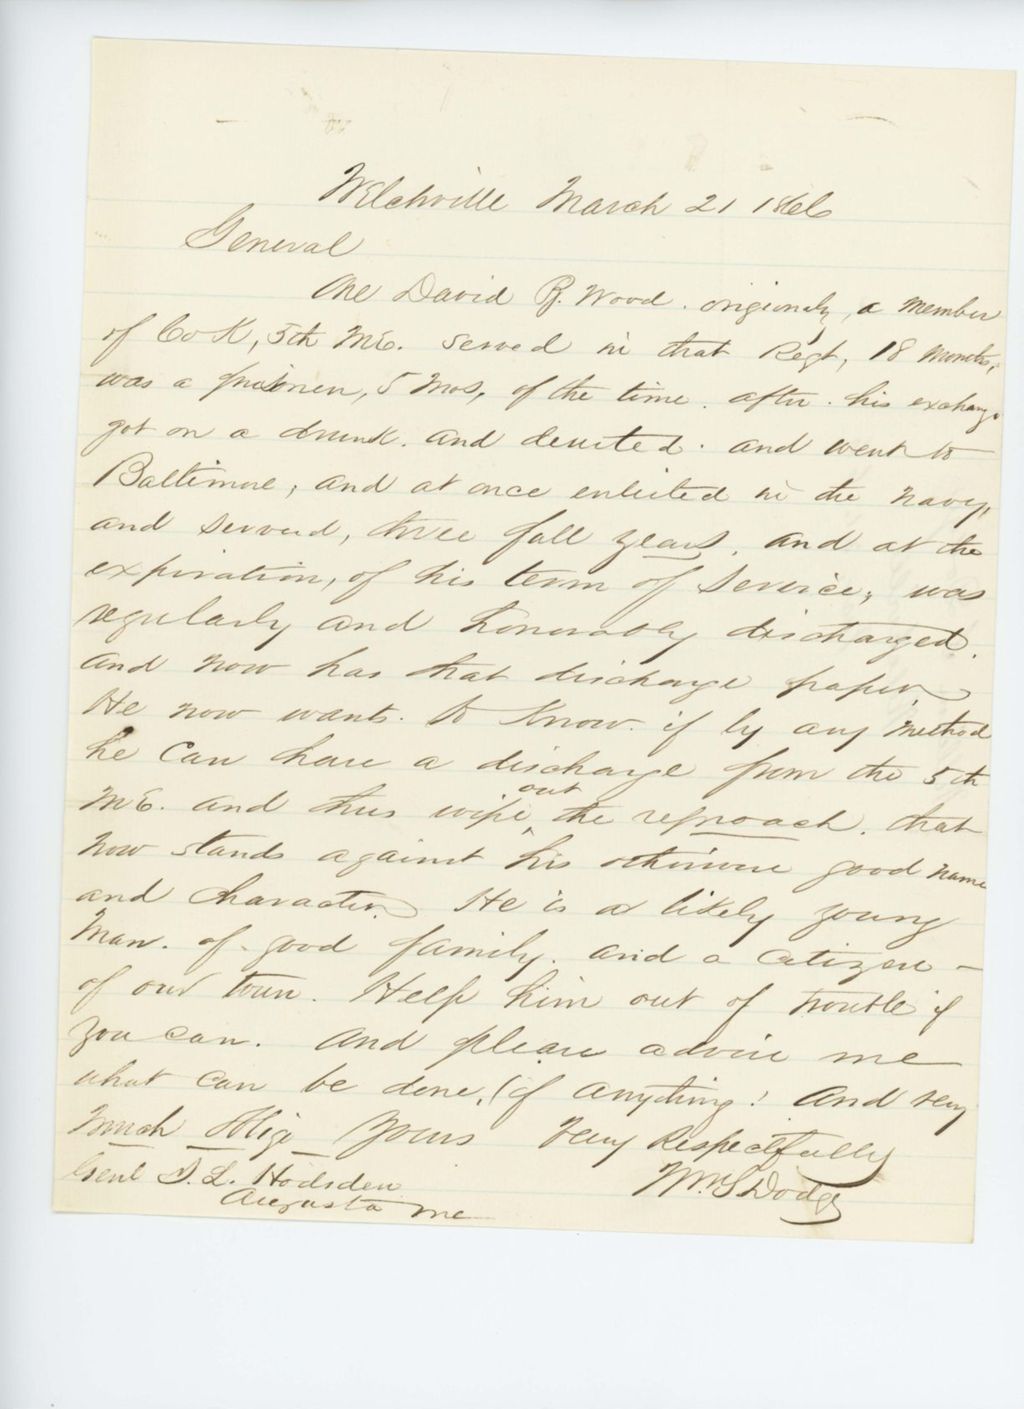 Welchville March 21 1866
General
One David R. Wood. origionaly, a member
of Co K, 5th ME. served in that Regt, 18 months,
was a prisoner, 5 mos, of the time. after. his exchange
got on a drunk. and deserted. and went to
Baltimore, and at once enlisted in the navy,
and served, three full years. and at the
expiration, of his term of Service, was
regularly and honorably discharged.
and now has that discharge paper.
He now wants. to know. if by any method
he can have a discharge from the 5th
ME. and thus wipe out the reproach. that
now stands against his otherwise good name
and character. He is a likely young
man. of good family. and a citizen -
of our town. Help him out of trouble if
you can. And please advise me
what can be done, (if anything! And very
much Oblige Yours Very Respectfully
Wm S Dodge
Genl J. L. Hodsden
Augusta Me